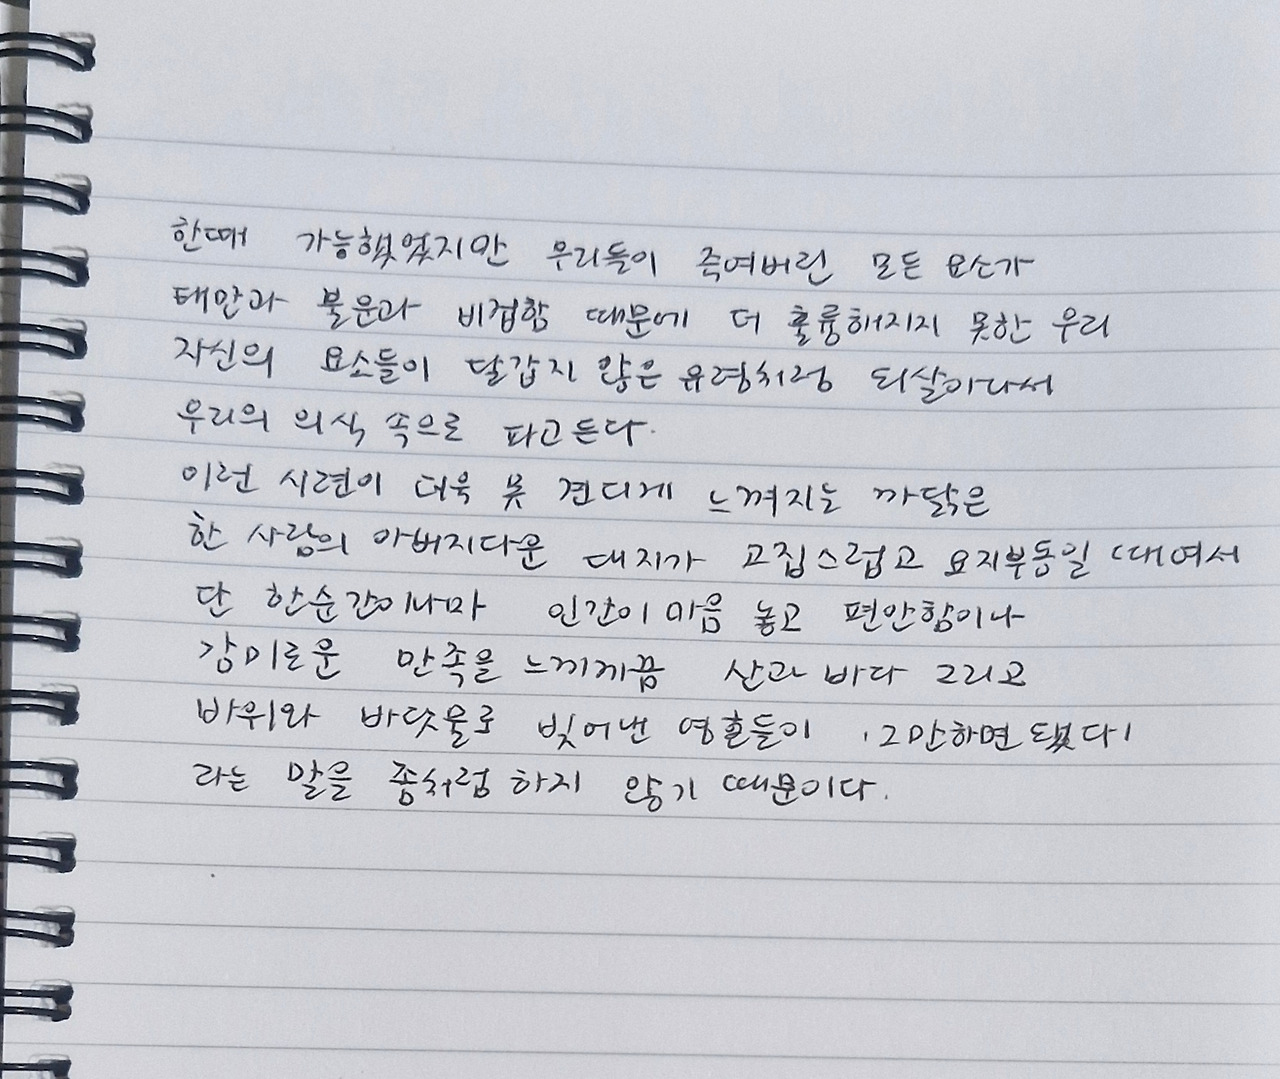 한때 가능했었지만 우리들이 죽여버린 모든 요소가
태만과 불운과 비겁함 때문에 더 훌륭해지지 못한 우리
자신의 요소들이 달갑지 않은 유령처럼 되살아나서
우리의 의식 속으로 파고든다.
이런 시련이 더욱 못 견디게 느껴지는 까닭은
한 사람의 아버지다운 대지가 고집스럽고 요지부동일 때여서
단 한순간이나마 인간이 마음 놓고 편안함이나
감미로운 만족을 느끼게끔 산과 바다 그리고
바위와 바닷물로 빚어낸 영혼들이 '그만하면 됐다'
라는 말을 좀처럼 하지 않기 때문이다.